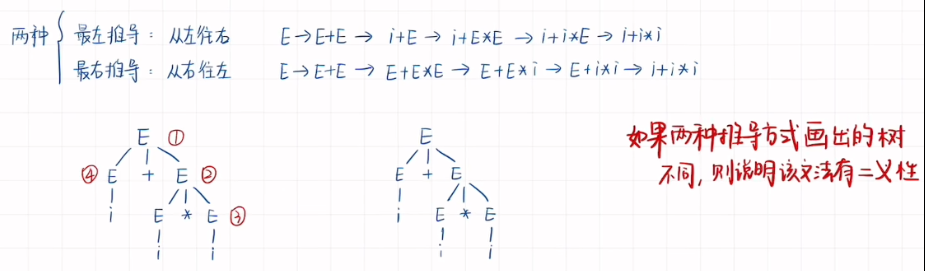 两种
最左推导：从左往右 E→E+E→ i+E → i+E*E → i+i*E → i+i*i
最右推导：从右往左 E→E+E → E+E*E → E+E*i → E+i*i → i+i*i
E ①
④ E + E ②
i E * E ③
i i
E
E + E
i E * E
i i
如果两种推导方式画出的树
不同，则说明该文法有二义性